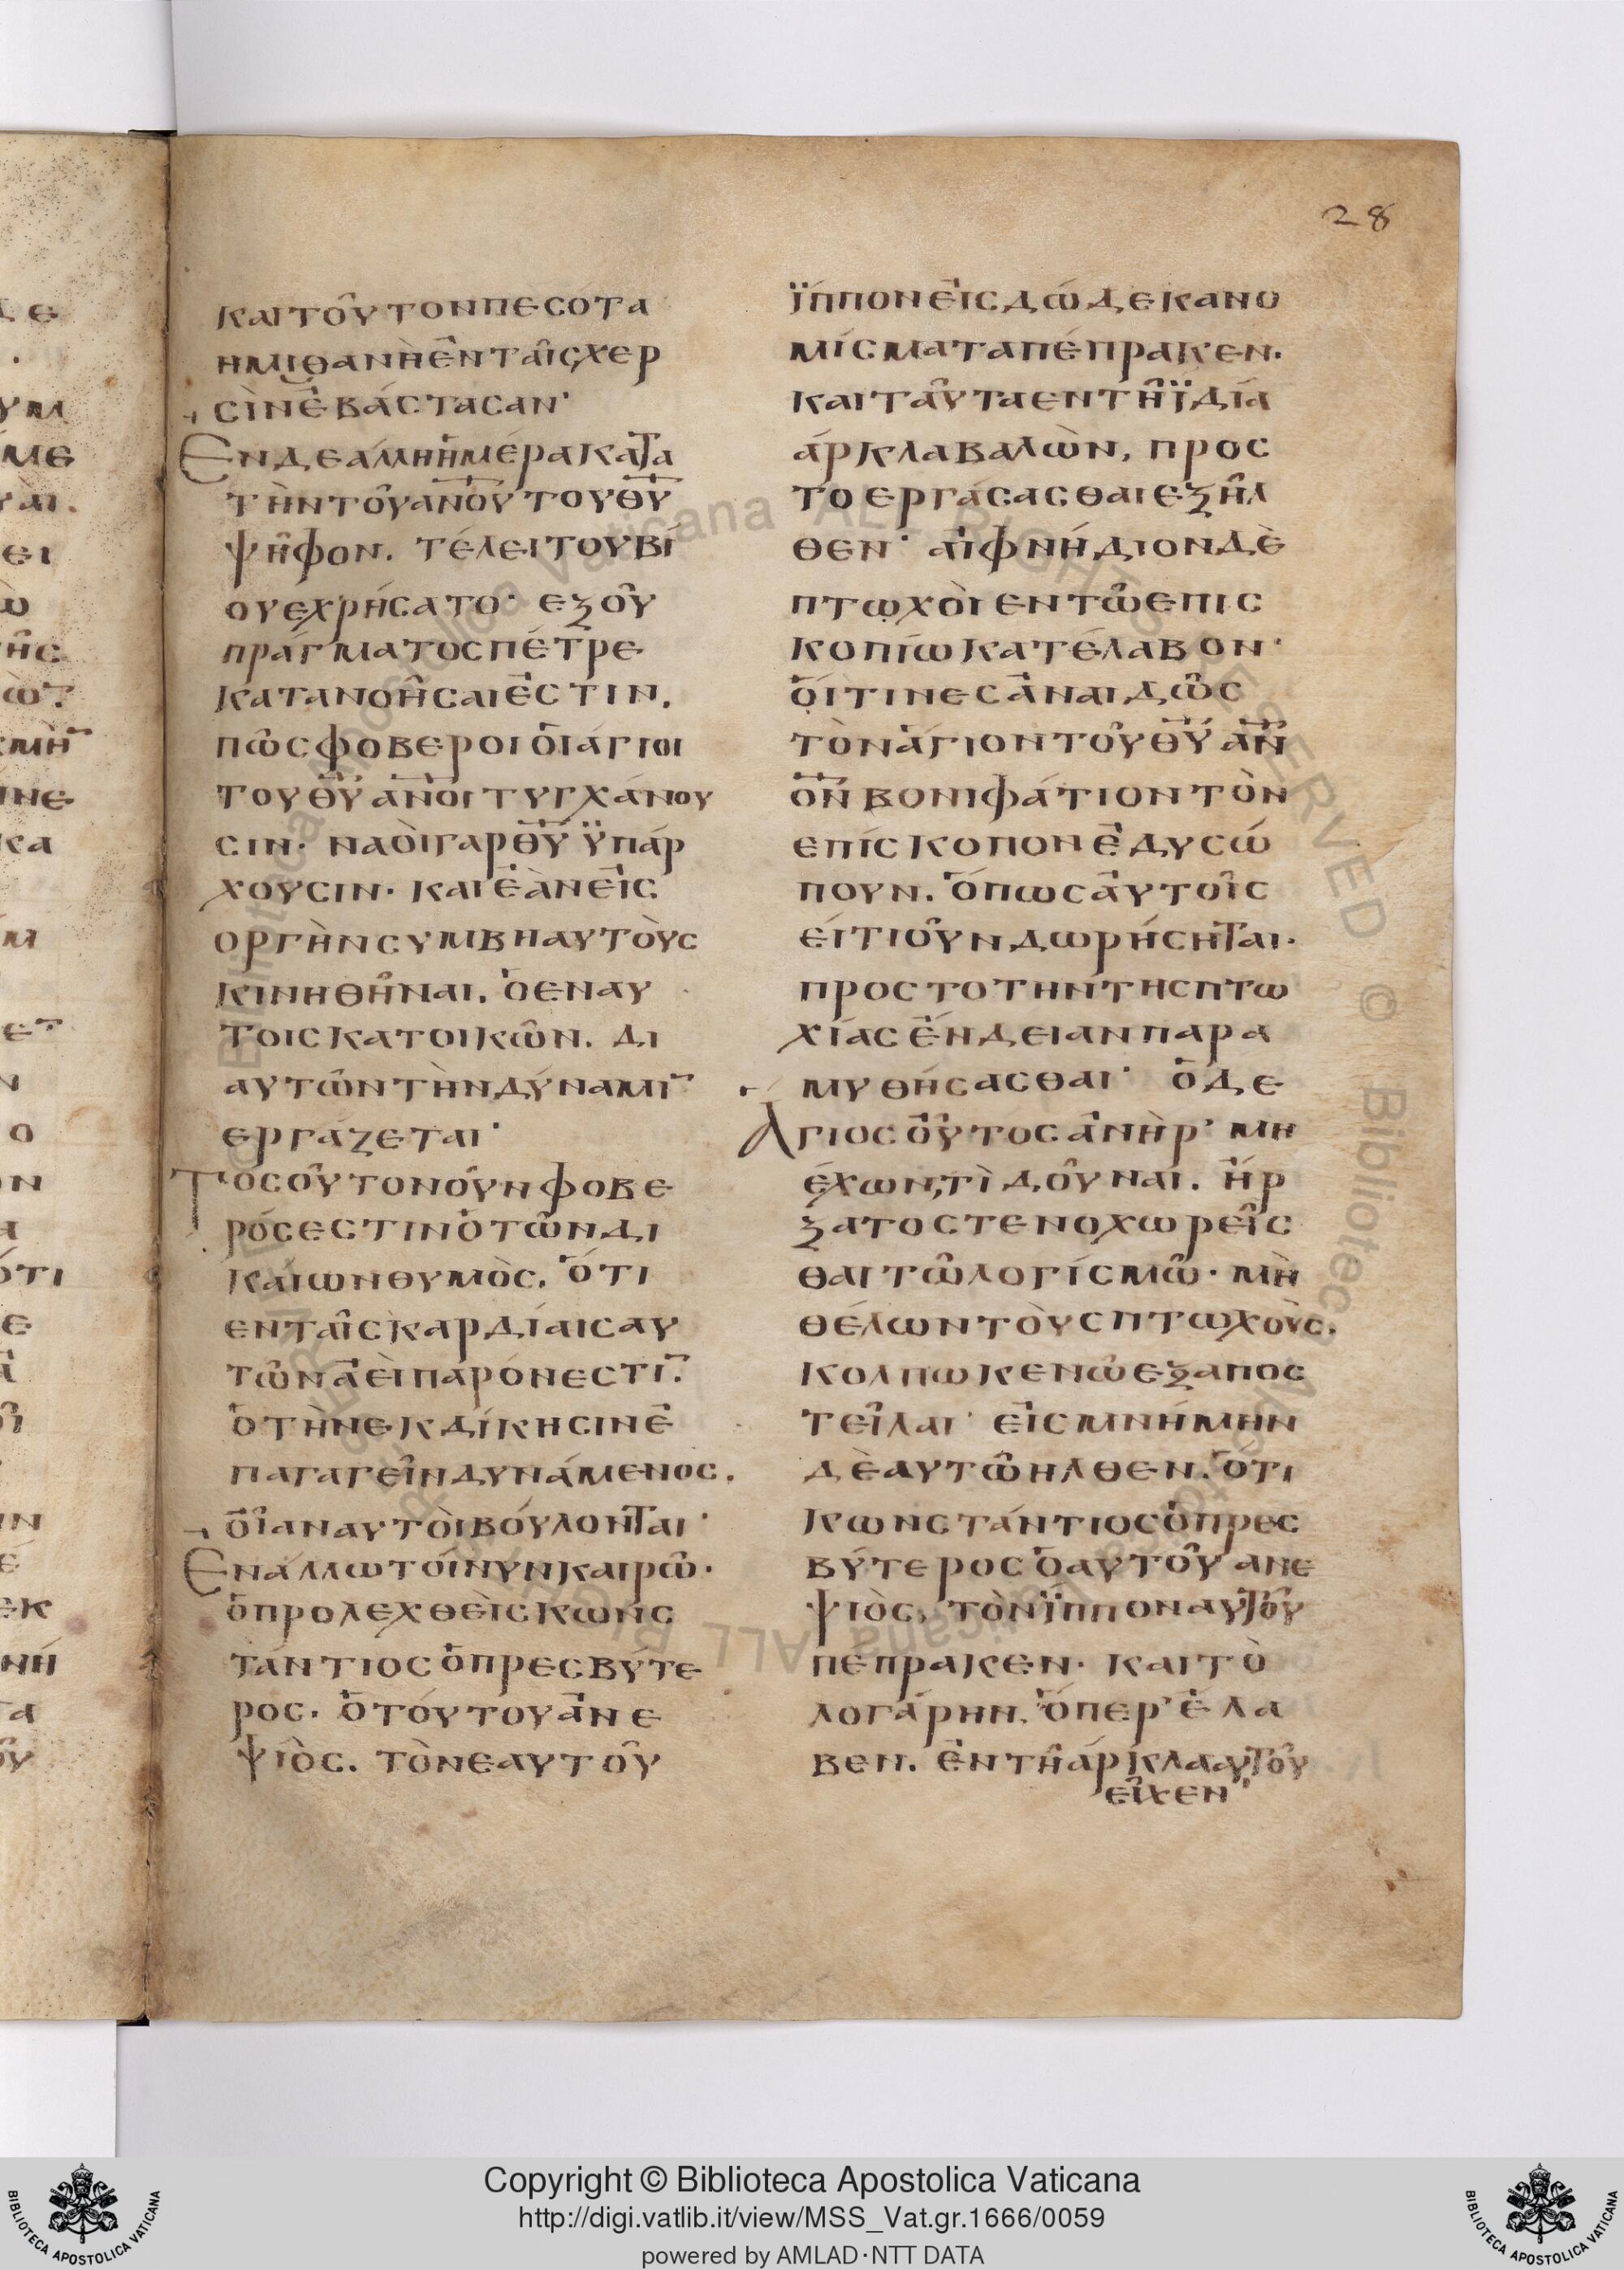 28
καιτοῦτονπεσοτα
ημιθανὴἐνταῖςχερ
σὶνἐβάστασαν·
Ενδεάμηἡμέρακατα
τὴντοῦανουτουθυ
ψῆφον. τέλειτουβί
ουεχρήσατο· εξοῦ
πράγματοσπέτρε
κατανοῆσαιἐστιν.
πῶσφοβεροιὁιάγιοι
τουθυανοιτυγχάνου
σιν· ναὸιγαρθυϋπάρ
χουσιν· καιἐὰνεἰς
οργὴνσυμβηαυτὸυς
κινηθῆναι. ὁθεναυ
τοισκατοικῶν. δι
αυτῶντὴνδύναμι̅
εργάζεται·
Τοσοῦτονόυνφοβε
ρόσεστινὁτῶνδι
καίωνθυμὸς. ὅτι
ενταῖσκαρδίαισαυ
τῶνἀεὶπάρόνεστι̅.
ὁτὴνεκδίκησινἐ
παγαγεῖνδυνάμενος.
ὅιαναυτὸιβόυλονται·
Ενάλλωτοίνυνκαιρῶ·
ὁπρολεχθεὶσκωνς
τάντιοσὁπρεσβύτε
ρος. ὁτόυτουἀνε
ψιὸς. τὸνεαυτοῦ
ϊππονεἰσδώδεκανο
μίσματαπέπρακεν.
καιταῦταεντῆϊδία
άρκλαβαλὼν, προς
τοεργάσασθαιεξῆλ
θεν· αἰφνήδιονδὲ
πτωχὸιεντῶεπισ
κοπίωκατέλαβον·
ὅιτινεσἀναιδῶς
τὸνἁγιοντοῦθυαν
ονβονιφάτιοντὸν
επίσκοπονἐδυσώ
πουν. ὅπωσἀυτοῖς
είτιοῦνδωρήσηται·
προστοτηντησπτω
χίασἐνδειανπαρα
μυθήσασθαι· ὁδε
Αγιοσοὗτοσἀνὴρ' μη
έχων,τὶδοῦναι. ἤρ
ξατοστενοχωρεῖς
θαιτῶλογίσμῶ· μὴ
θέλωντὸυσπτωχοὺς,
κολπωκενῶεξαπος
τεῖλαι· εἰσμνήμην
δὲαυτῶηλθεν. ὅτι
κωνστάντιοσὁπρεσ
βύτεροσὁαυτοῦανε
ψιὸς, τὸνϊππόναυτοῦ
πέπρακεν· καιτὸ
λογάρην. ὅπερ'ἐλα
βεν. ἐντῆάρκλααυτοῦ
εἶχεν·
Copyright © Biblioteca Apostolica Vaticana
http://digi.vatlib.it/view/MSS_Vat.gr.1666/0059
powered by AMLAD·NTT DATA
BIBLIOTECA APOSTOLICA VATICANA
BIBLIOTECA APOSTOLICA VATICANA